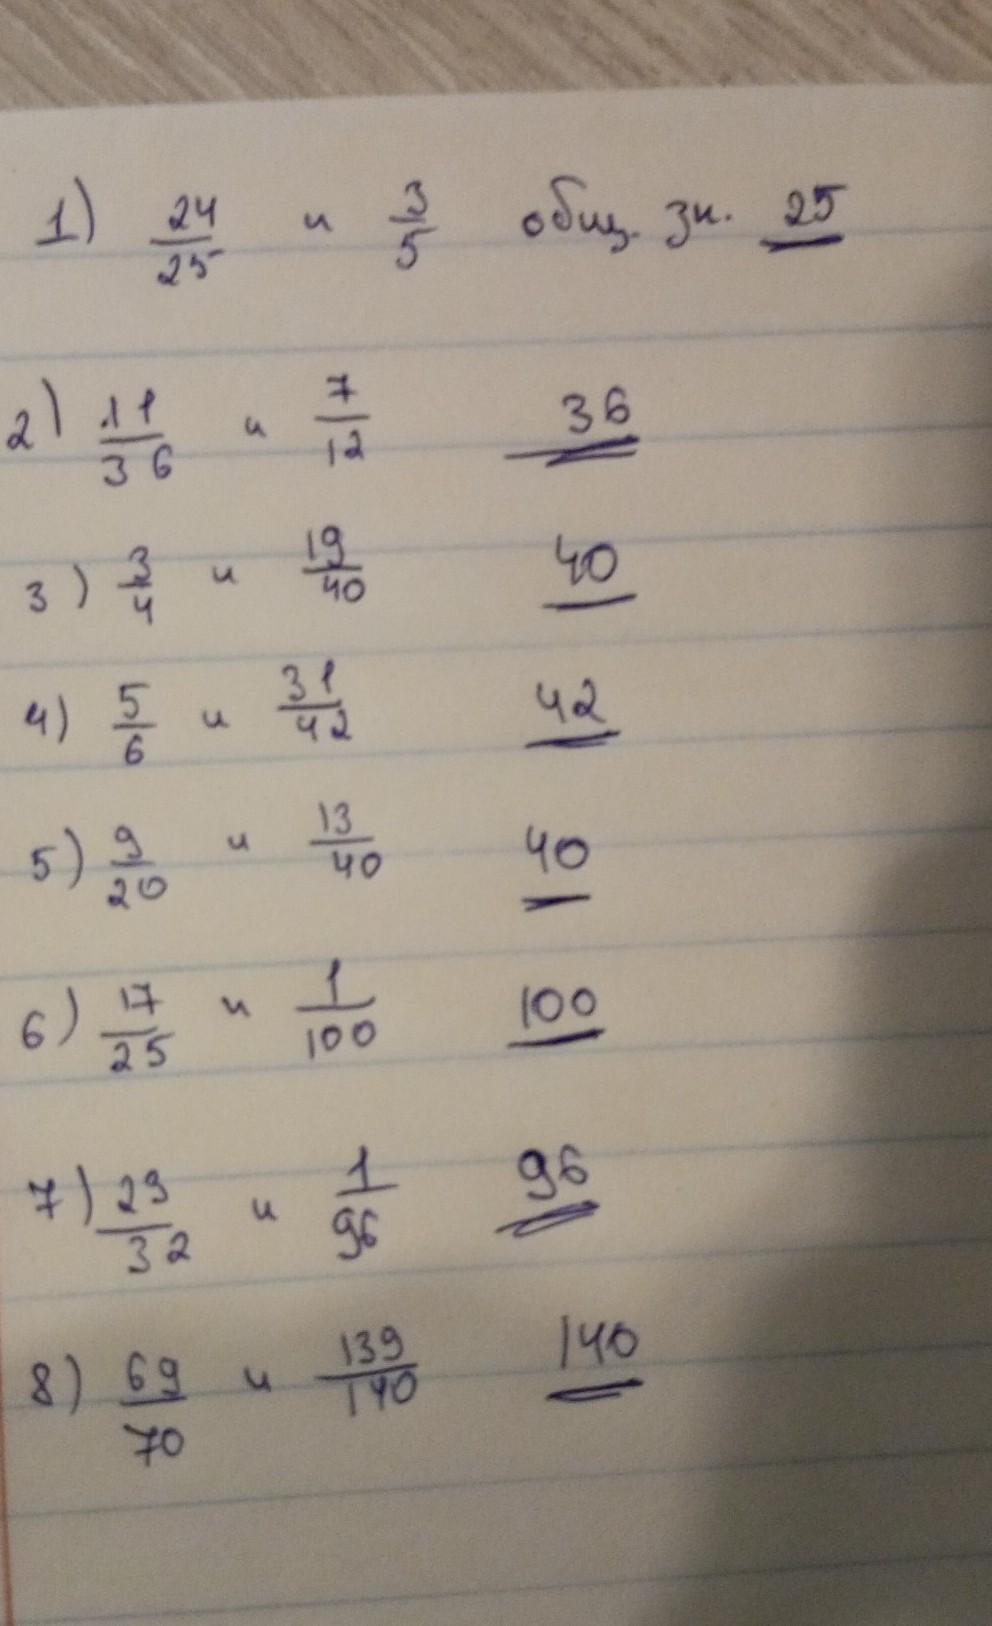 1) 24/25 и 3/5 общ. зн. 25
2) 11/36 и 7/12 36
3) 3/4 и 19/40 40
4) 5/6 и 31/42 42
5) 9/20 и 13/40 40
6) 17/25 и 1/100 100
7) 29/32 и 1/96 96
8) 69/70 и 139/140 140